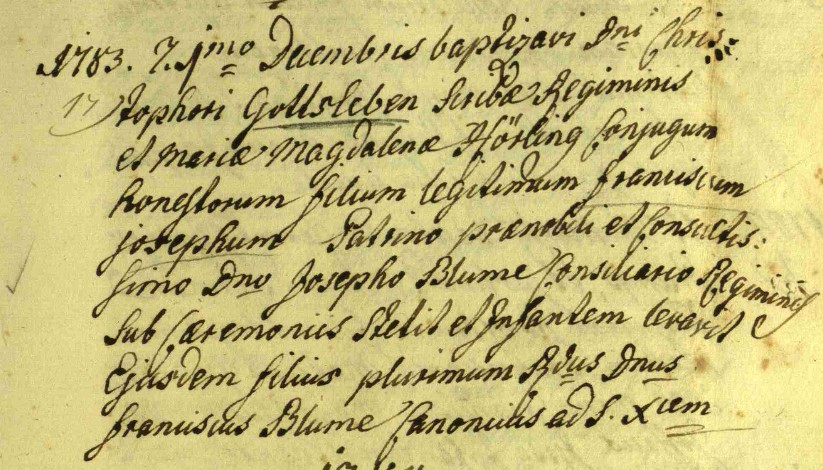 1783. 7.jmo Decembris baptizavi Dni Chris:
17) tophori Gottsleben Scribæ Regiminis
et Mariæ Magdalenæ Conjugum
honestorum filium legitimum franciscum
josephum Patrino prænobili et Consultis:
simo Dno Josepho Blume Consiliario Regiminis
Sub Cæremoniis Stetit et Infantem levavit
Ejusdem filius plurimum Rdus Dnus
franciscus Blume Canonicus ad S. Xcem